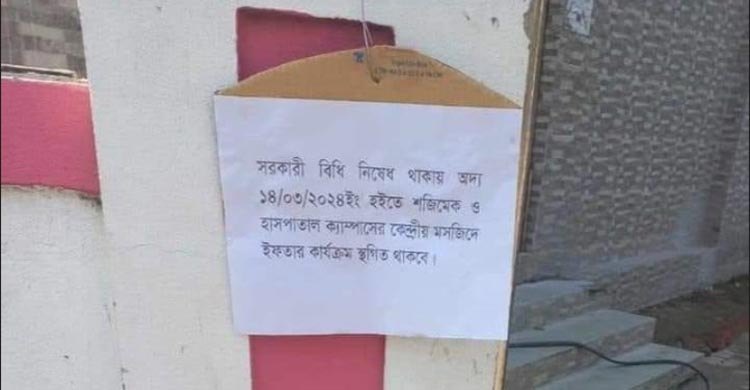 সরকারী বিধি নিষেধ থাকায় অদ্য
১৪/০৩/২০২৪ইং হইতে শজিমেক ও
হাসপাতাল ক্যাম্পাসের কেন্দ্রীয় মসজিদে
ইফতার কার্যক্রম স্থগিত থাকবে।